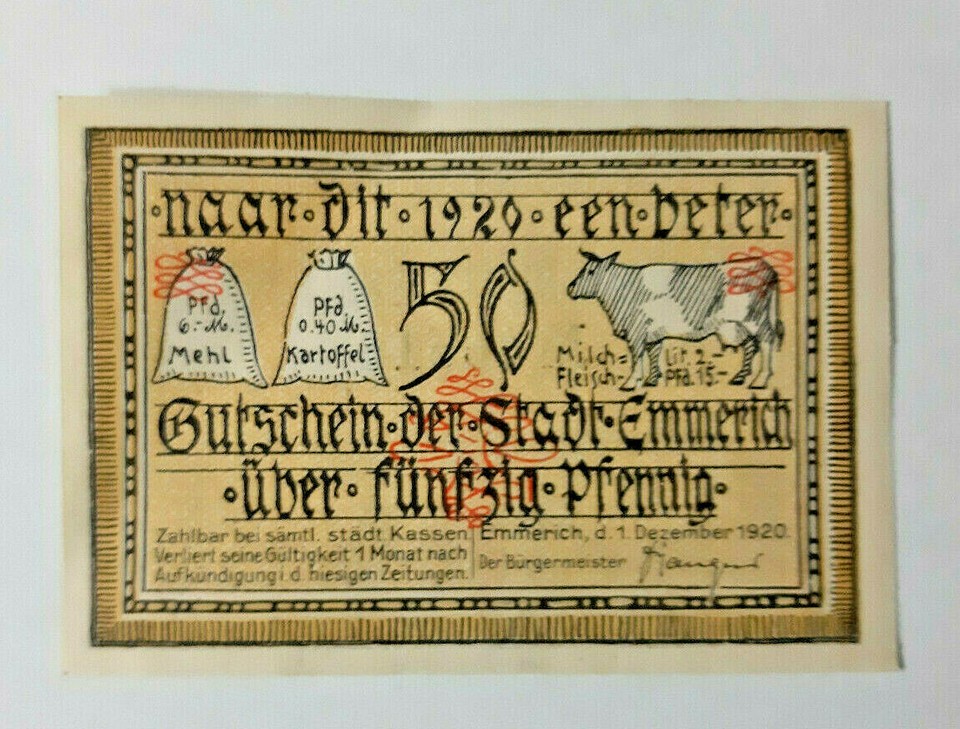 ·naar·dit·1920·een·beter·
Pfd.
6.-M.
Mehl
Pfd.
0.40 M.
Kartoffel
50
Milch= Lit. 2.-
Fleisch= Pfd. 15.-
Gutschein·der·Stadt·Emmerich
·über·fünfzig·Pfennig·
Zahlbar bei sämtl. städt. Kassen.
Verliert seine Gültigkeit 1 Monat nach
Aufkündigung i. d. hiesigen Zeitungen.
Emmerich, d. 1. Dezember 1920.
Der Bürgermeister